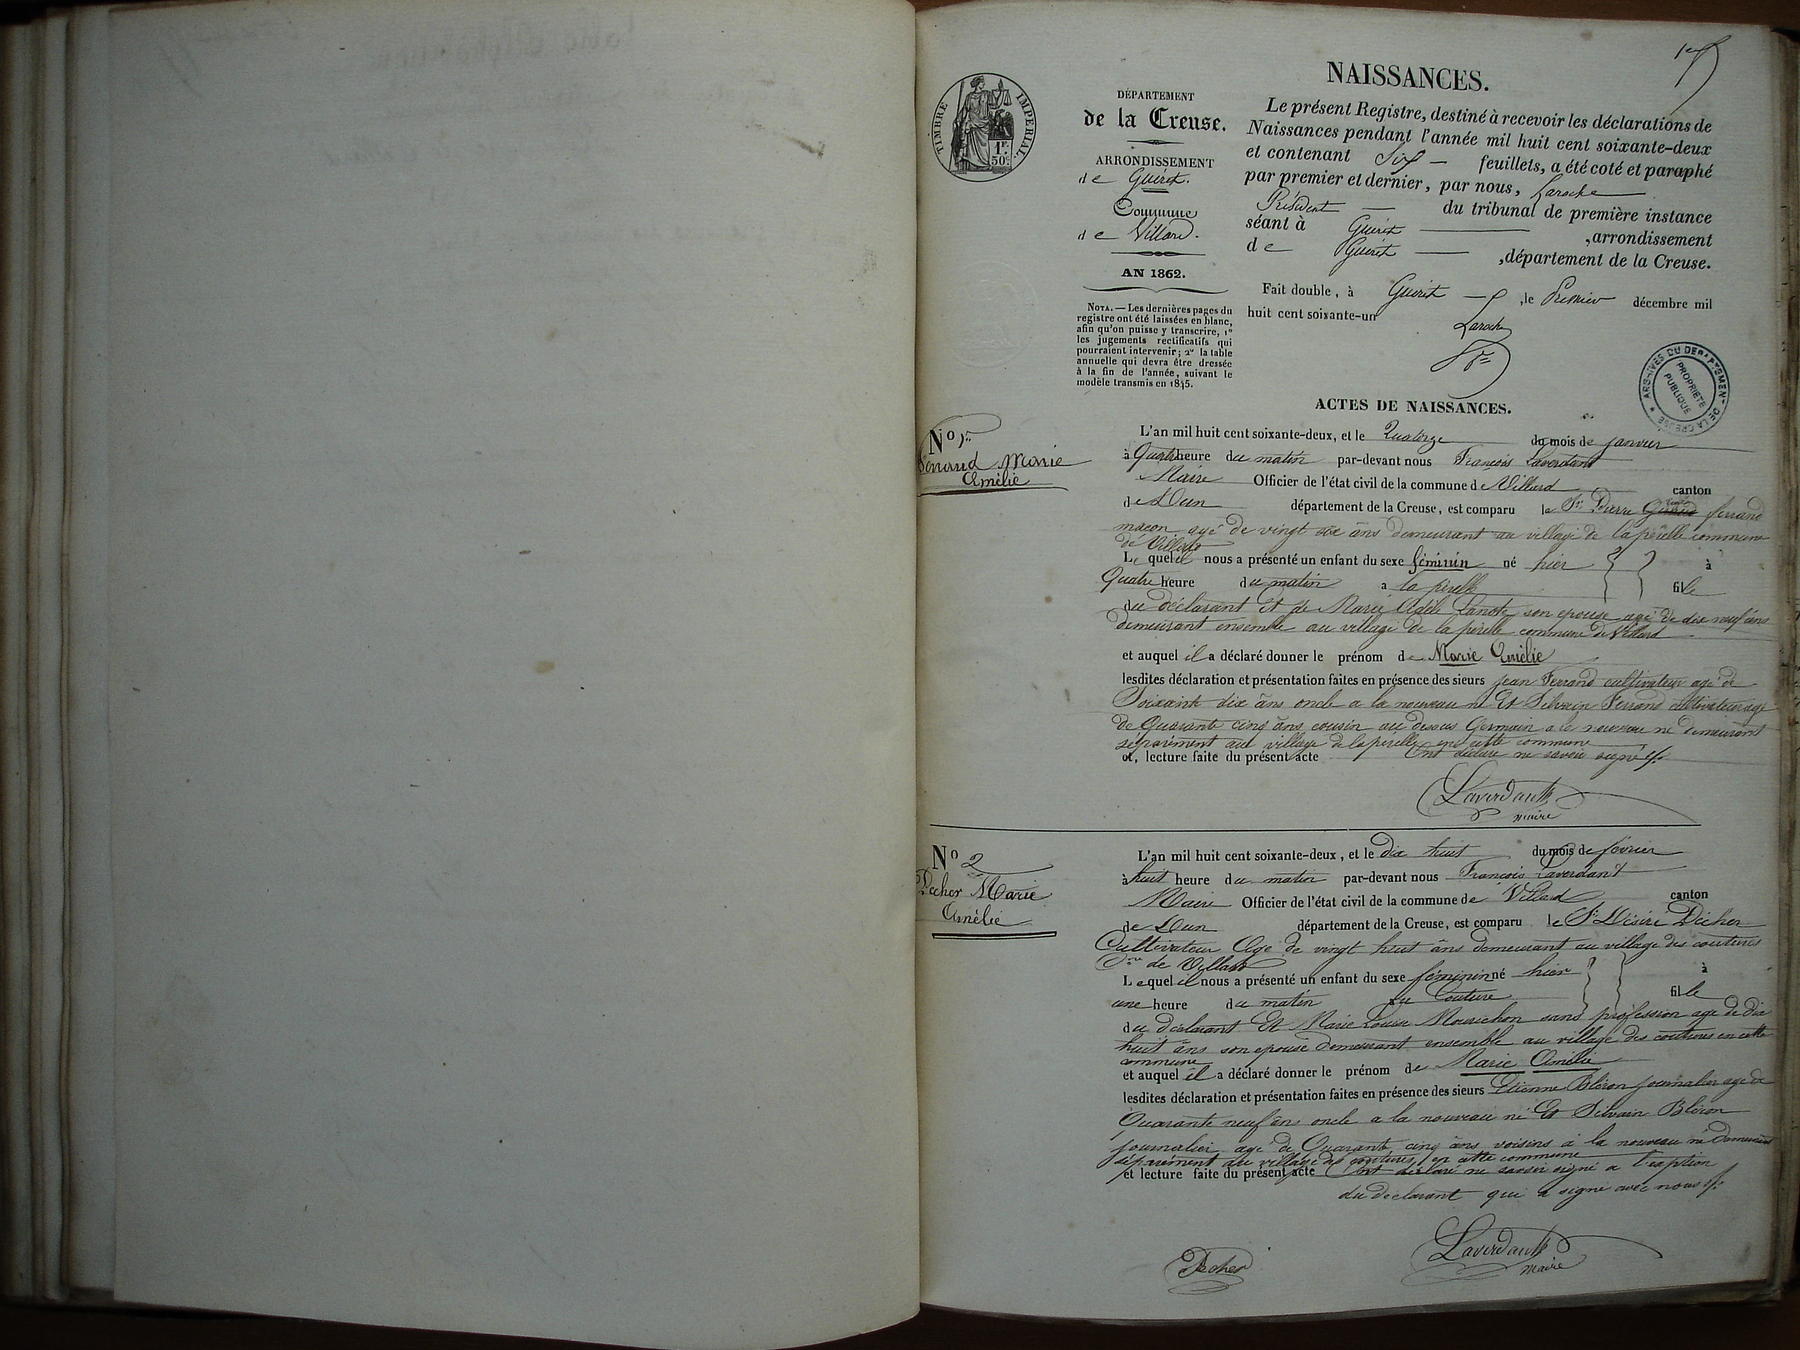 1er
NAISSANCES.
TIMBRE IMPERIAL.
1F.
50C.
DÉPARTEMENT
de la Creuse.
ARRONDISSEMENT
de Guéret.
Commune
de Villard.
AN 1862.
NOTA. — Les dernières pages du
registre ont été laissées en blanc,
afin qu'on puisse y transcrire, 1º
les jugements rectificatifs qui
pourraient intervenir; 2º la table
annuelle qui devra être dressée
à la fin de l'année, suivant le
modèle transmis en 1845.
Le présent Registre, destiné à recevoir les déclarations de
Naissances pendant l'année mil huit cent soixante-deux
et contenant Six — feuillets, a été coté et paraphé
par premier et dernier, par nous, Laroche
Président — du tribunal de première instance
séant à Guéret ,arrondissement
de Guéret — ,département de la Creuse.
Fait double, à Guéret — ,le Premier décembre mil
huit cent soixante-un
Laroche
ARCHIVES DU DEPARTEMENT DE LA CREUSE
PROPRIÉTÉ
PUBLIQUE
ACTES DE NAISSANCES.
No 1er
Ferrand Marie
Amélie
L'an mil huit cent soixante-deux, et le Quatorze du mois de janvier
à Quatre heure du matin par-devant nous François Laverdant
Maire Officier de l'état civil de la commune de Villard canton
de Dun département de la Creuse, est comparu le Sr Pierre ferrand
maçon agé de vingt six ans demeurant au village de la pérelle commune
de Villard
Le quel il nous a présenté un enfant du sexe féminin né hier à
Quatre heure du matin a la pérelle fille
du déclarant Et de Marie Adèle Lanote son epouse agé de dix neuf ans
demeurant ensemble au village de la pérelle commune de Villard
et auquel il a déclaré donner le prénom de Marie Amélie
lesdites déclaration et présentation faites en présence des sieurs jean Ferrand cultivateur agé de
Soixante dix ans oncle a la nouveau né Et Silvain Ferrand cultivateur agé
de Quarante cinq ans cousin au dessus Germain a le nouveau né demeurant
séparément au village de la perelle en cette commune
et, lecture faite du présent acte Ont déclaré ne savoir signé
Laverdant
maire
No 2
Pecher Marie
Amélie
L'an mil huit cent soixante-deux, et le dix huit du mois de février
à huit heure du matin par-devant nous François Laverdant
Maire Officier de l'état civil de la commune de Villard canton
de Dun département de la Creuse, est comparu le Sr Désiré Pécher
Cultivateur Agé de vingt huit ans demeurant au village des coutures
Cne de Villard
Lequel il nous a présenté un enfant du sexe féminin né hier à
une heure du matin au Couture fille
du déclarant Et Marie Louise Mourichon sans profession age de dix
huit ans son epouse demeurant ensemble au village des coutures en cette
commune
et auquel il a déclaré donner le prénom de Marie Amélie
lesdites déclaration et présentation faites en présence des sieurs Etienne Bléron journalier age de
Quarante neuf ans oncle a la nouveau né Et Silvain Bléron
journalier agé de Quarante cinq ans voisins a la nouveau né demeurant
séparément au village des coutures en cette commune
et lecture faite du présent acte Ont déclaré ne savoir signé a l'exption
du déclarant qui a signé avec nous
Pecher
Laverdant
maire